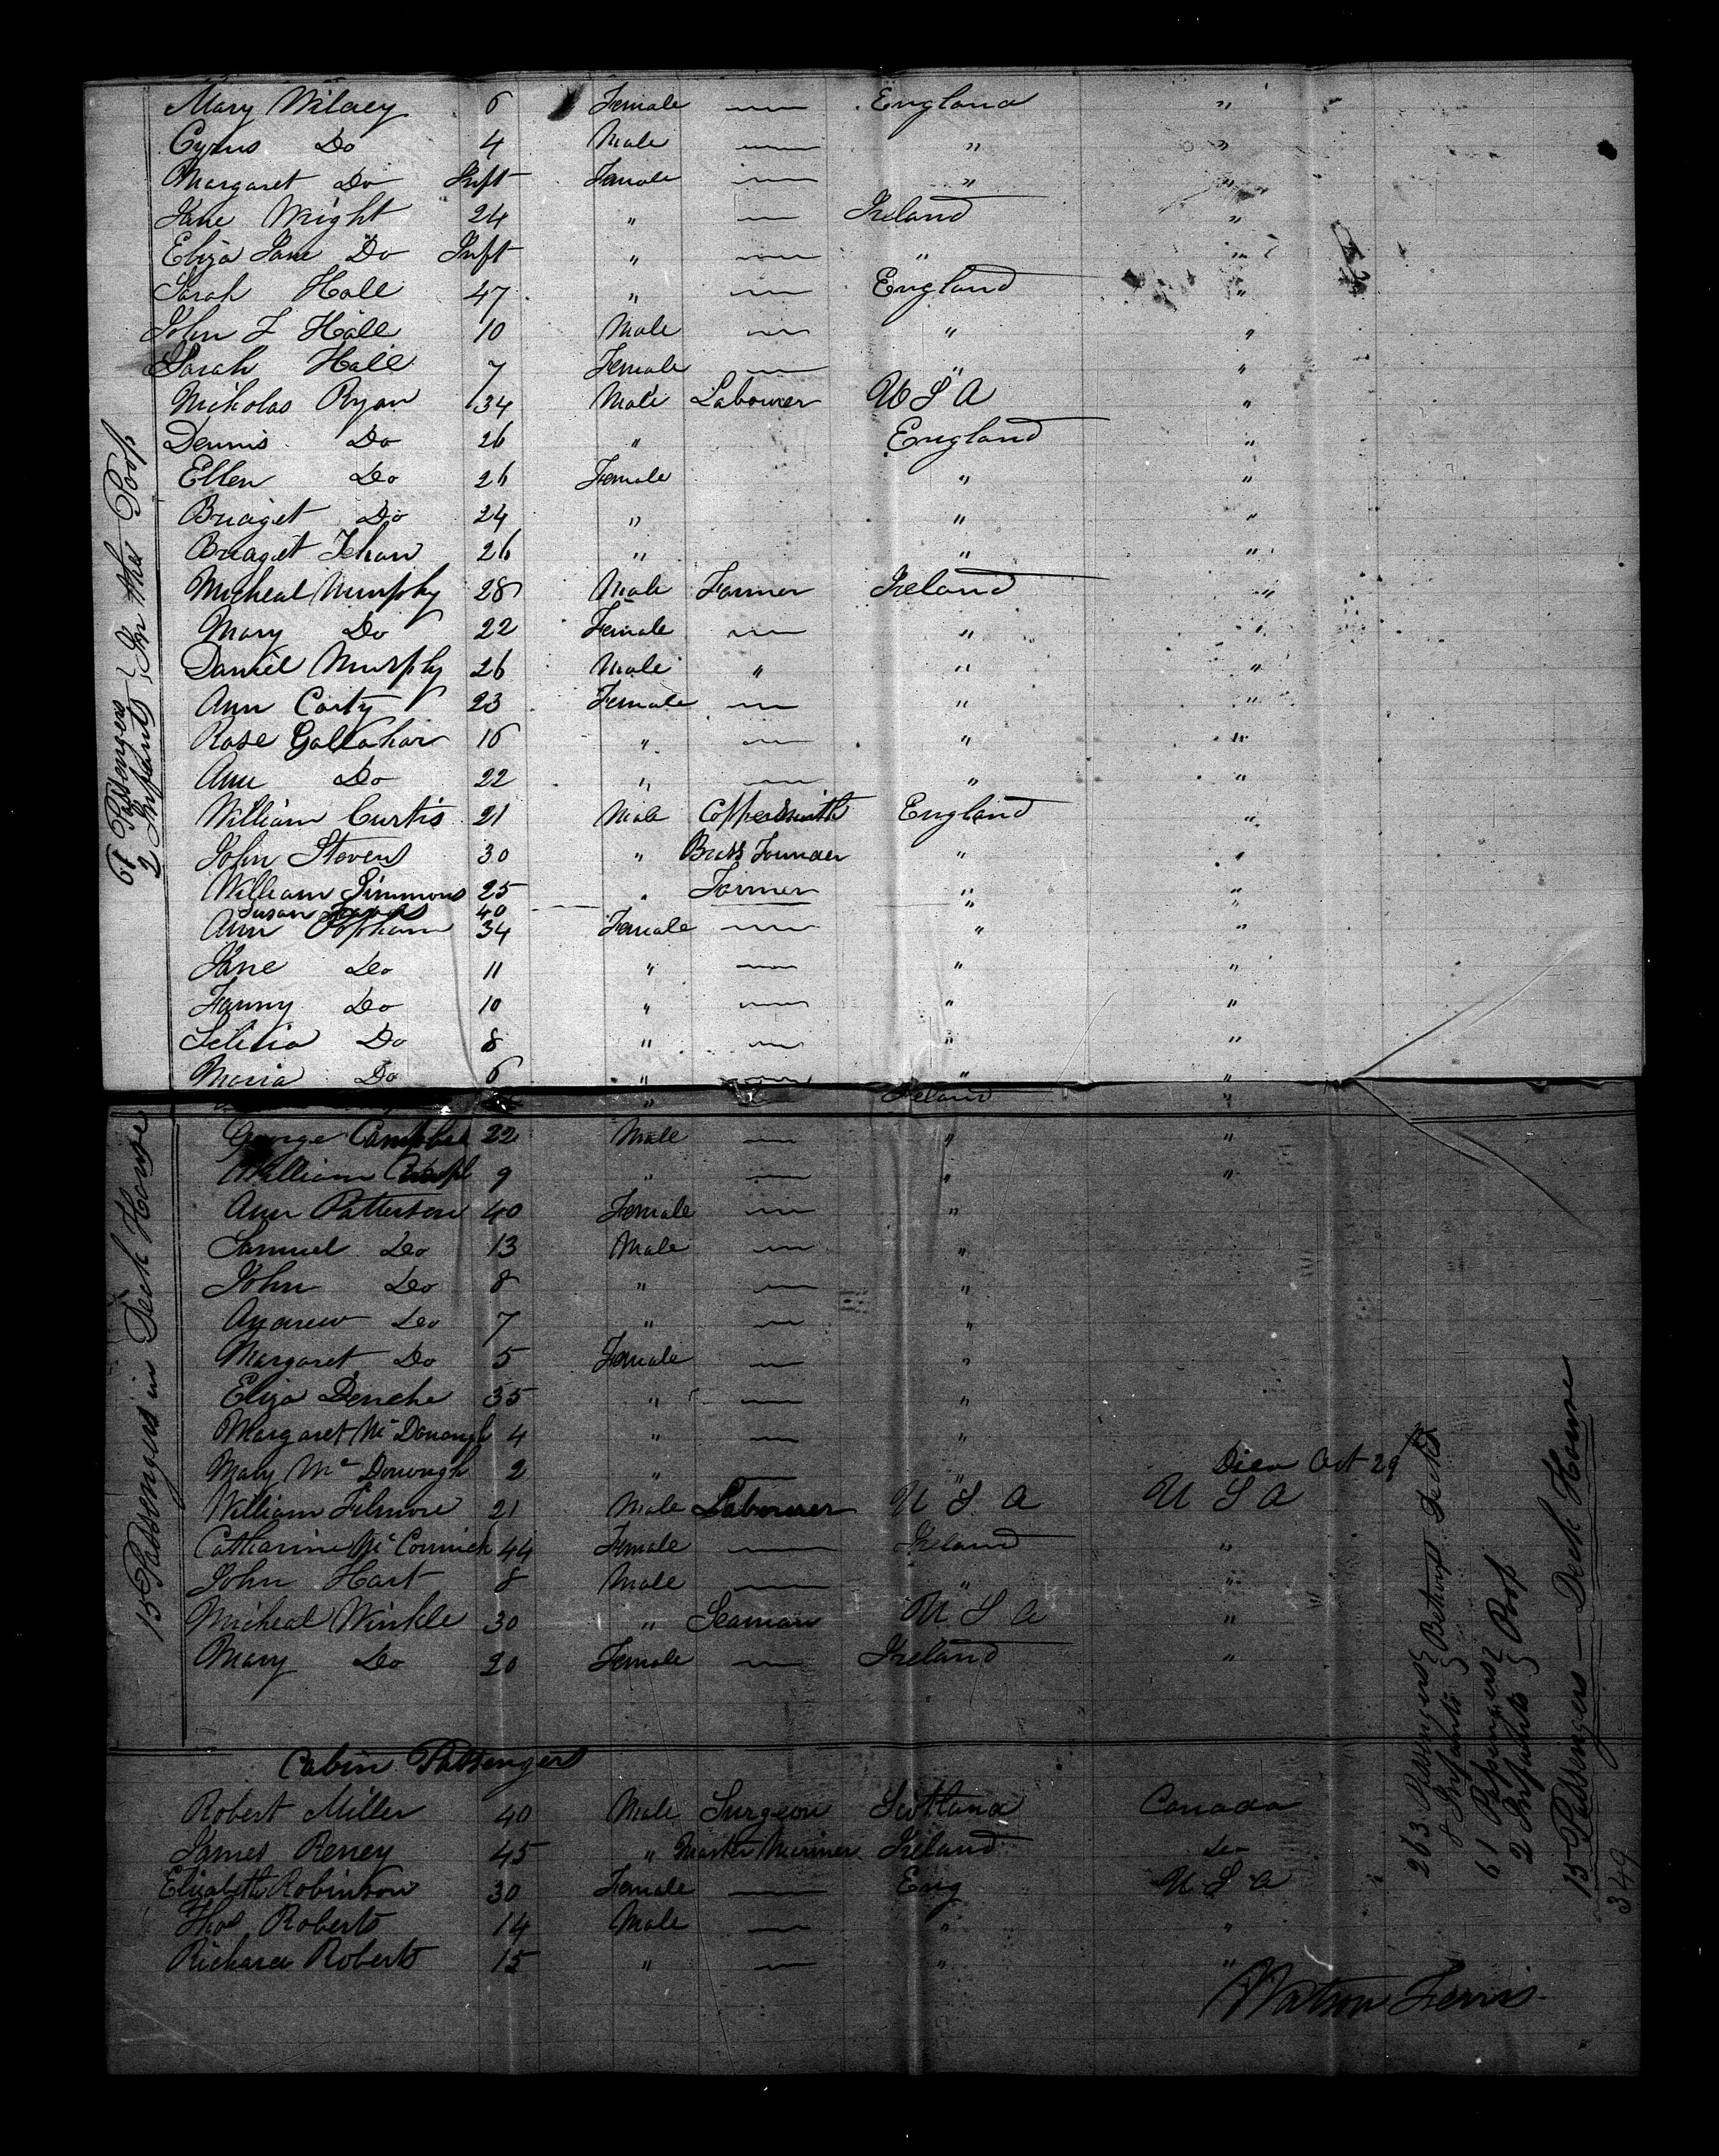 Mary Wilaey 6 Female — England "
Cyrus Do 4 Male — " "
Margaret Do Inft Female — " "
Jane Wright 24 " — Ireland "
Eliza Jane Do Inft " — " "
Sarah Hall 47 " — England "
John T Hall 10 Male — " "
Sarah Hall 7 Female — " "
Nicholas Ryan 34 Male Labourer U S A "
Dennis Do 26 " England "
Ellen Do 26 Female " "
Bridget Do 24 " " "
Bridget 26 " " "
Micheal Murphy 28 Male Farmer Ireland "
Mary Do 22 Female — " "
Daniel Murphy 26 Male " " "
Ann Carty 23 Female — " "
Rose Gallahar 16 " — " "
Ann Do 22 " — " "
William Curtis 21 Male Coppersmith England "
John Stevens 30 " Brass Founder " "
William Simmons 25 " Farmer " "
Susan 40 — — " "
Ann Popham 34 Female — " "
Jane Do 11 " — " "
Fanny Do 10 " — " "
Selina Do 8 " — " "
Maria Do 6 " — " "
61 Passengers } In the Poop
2 Infants
" — Ireland "
George Campbel 22 Male — " "
William Campl 9 " — " "
Ann Patterson 40 Female — "
Samuel Do 13 Male — "
John Do 8 " — "
Andrew Do 7 " — "
Margaret Do 5 Female — "
Eliza 35 " — "
Margaret Mc Donough 4 " — "
Mary Mc Donough 2 " — " Died Oct 29
William Filmore 21 Male Labourer U S A U S A
Catharine Mc Cormick 44 Female — Ireland "
John Hart 8 Male — " "
Micheal Winkle 30 " Seaman U S A "
Mary Do 20 Female — Ireland "
15 Passengers in Deck House
Cabin Passengers
Robert Miller 40 Male Surgeon Scotland Canada
James Reney 45 " Master Mariner Ireland Do
Elizabeth Robinson 30 Female — Eng U S A
Thos Roberts 14 Male — " "
Richard Roberts 15 " — " "
Watson Ferris
263 Passengers } Betwixt Decks
8 Infants
61 Passengers } Poop
2 Infants
15 Passengers — Deck House
349